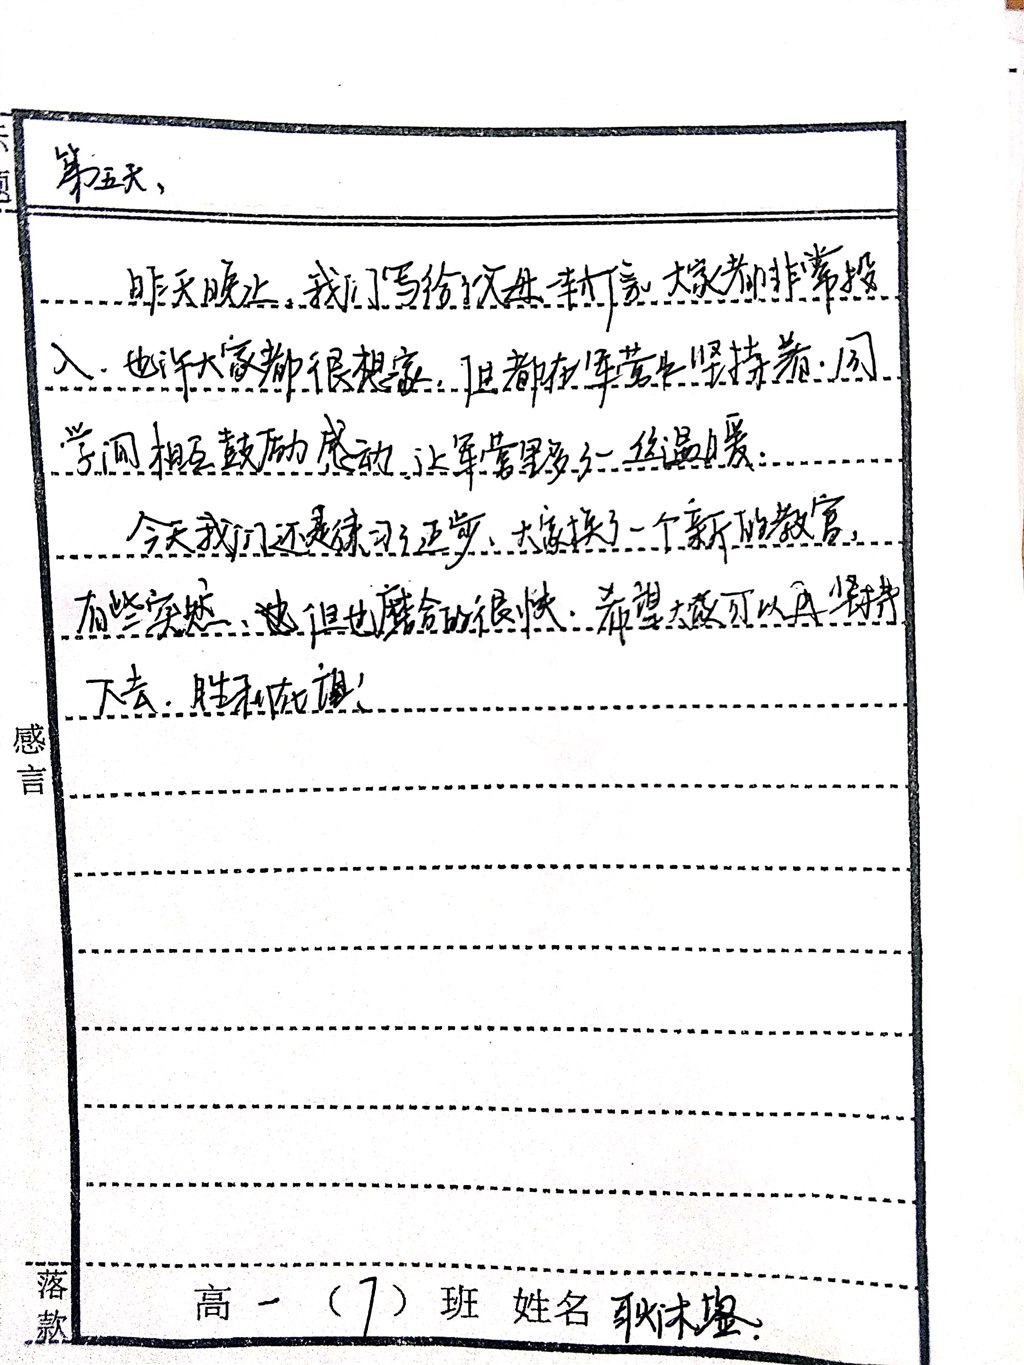 题
第五天、
昨天晚上,我们写给了父母一封信。大家都非常投
入.也许大家都很想家,但都在军营中坚持着.同
学间相互鼓励感动,让军营里多了一丝温暖.
今天我们还是练习了正步、大家换了一个新的教官,
有些突然、但也磨合的很快.希望大家可以再坚持
下去.胜利在望!
感言
落款 高一(7)班 姓名 耿沐